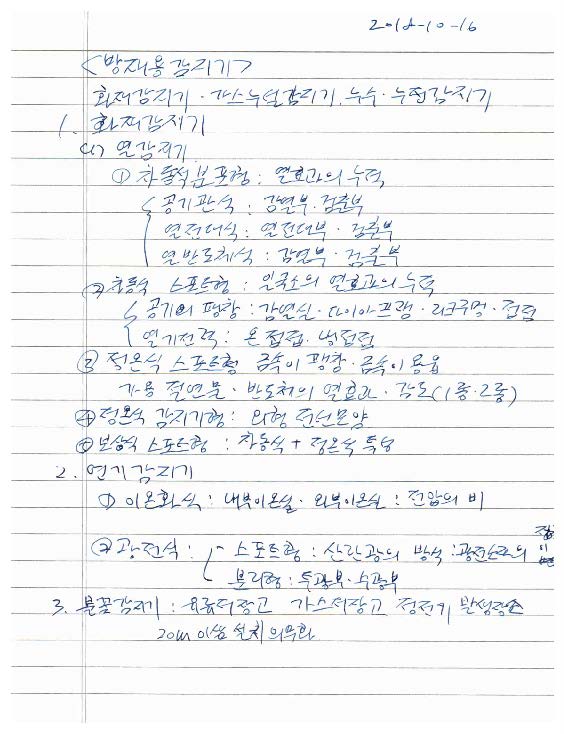 2018-10-16
<방재용감지기>
화재감지기 · 가스누설감지기, 누수 · 누전감지기
1. 화재감지기
(1) 열감지기
① 차동식분포형 : 열효과의 누적
공기관식 : 감열부 · 검출부
열전대식 : 열전대부 · 검출부
열반도체식 : 감열부 · 검출부
② 차동식 스포트형 : 일국소의 열효과의 누적
공기의 팽창 : 감열실 · 다이아프램 · 리크구멍 · 접점
열기전력 : 온접점 · 냉접점
③ 정온식 스포트형 금속이 팽창 · 금속이 용융
가용 절연물 · 반도체의 열효과 · 감도(1종 · 2종)
④ 정온식 감지기형 : 외형 전선모양
⑤ 보상식 스포트형 : 차동식 + 정온식 특성
2. 연기감지기
① 이온화식 : 내부이온실 · 외부이온실 : 전압의 비
② 광전식 : - 스포트형 : 산란광의 방식 : 광전소자의
분리형 : 투광부 · 수광부
3. 불꽃감지기 : 유류저장고 가스저장고 정전기 발생장소
20m 이상 설치 의무화